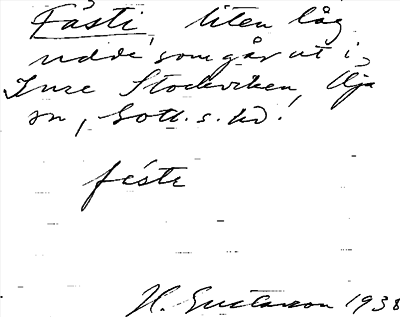 Fästi, liten låg
udde, som går ut i
Inre Stockviken, Öja
sn, Gotl. s. hd.
fésti
H. Gustavson 1938